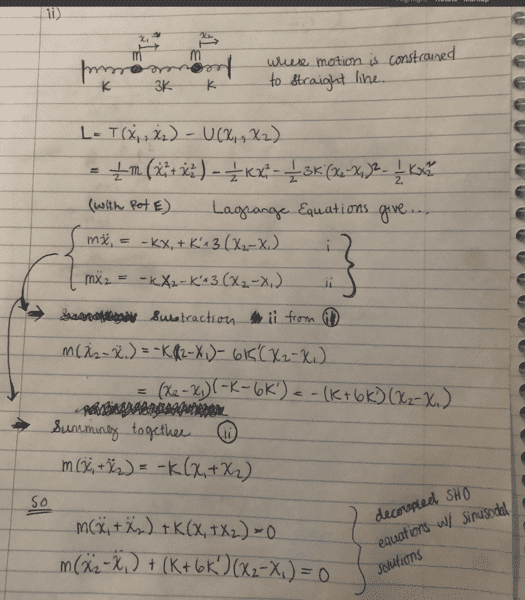 ii)
x₁ x₂
m m
K 3K K
where motion is constrained
to straight line.
L = T(ẋ₁, ẋ₂) - U(x₁, x₂)
= 1/2 m (ẋ₁² + ẋ₂²) - 1/2 Kx₁² - 1/2 3K'(x₂-x₁)² - 1/2 Kx₂²
(with Pot E) Lagrange Equations give...
mẍ₁ = -Kx₁ + K'·3 (x₂-x₁) i
mẍ₂ = -Kx₂ - K'·3 (x₂-x₁) ii
Subtraction ii from
m(ẍ₂-ẍ₁) = -K(x₂-x₁) - 6K'(x₂-x₁)
= (x₂-x₁)(-K-6K') = -(K+6K')(x₂-x₁)
Summing together ii
m(ẍ₁+ẍ₂) = -K(x₁+x₂)
SO
m(ẍ₁+ẍ₂) + K(x₁+x₂) = 0
m(ẍ₂-ẍ₁) + (K+6K')(x₂-x₁) = 0
decoupled SHO
equations w/ sinusodal
solutions